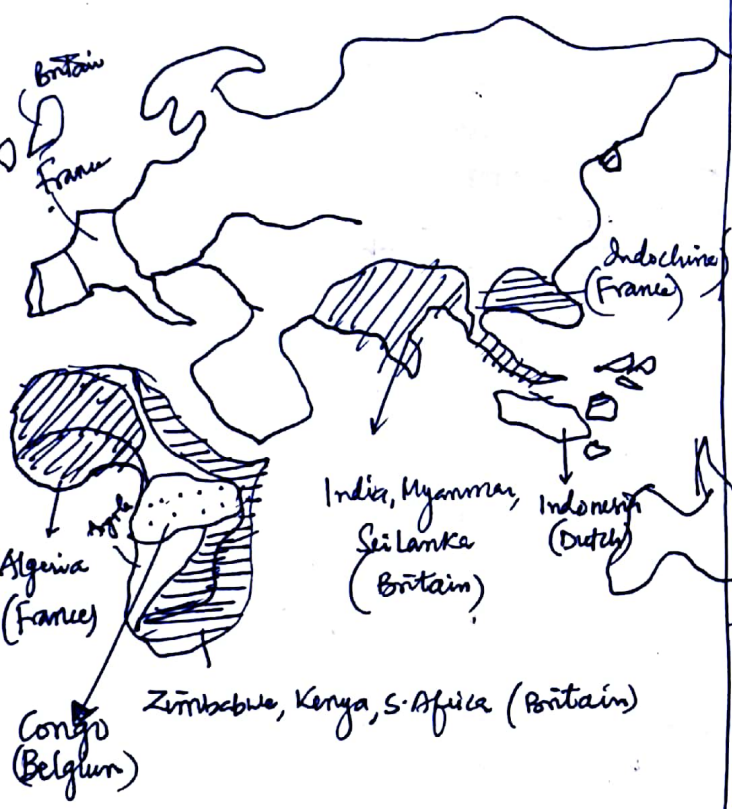 Britain
France
Indochina
(France)
India, Myanmar,
Sri Lanka
(Britain)
Indonesia
(Dutch)
Angola
Algeria
(France)
Zimbabwe, Kenya, S. Africa (Britain)
Congo
(Belgium)